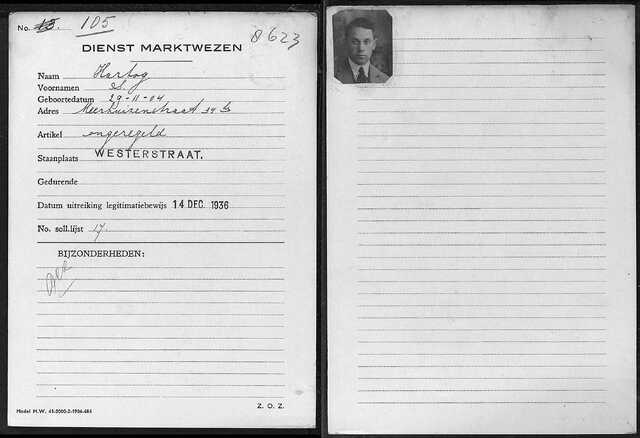 No. 13 105
8623
DIENST MARKTWEZEN
Naam Hartog
Voornamen S.
Geboortedatum 29-11-04
Adres Meerhuizenstraat 34 b
Artikel ongeregeld
Staanplaats WESTERSTRAAT.
Gedurende
Datum uitreiking legitimatiebewijs 14 DEC. 1936
No. soll.lijst 17
BIJZONDERHEDEN:
Model M.W. 45-2000-2-1936-484
Z. O. Z.